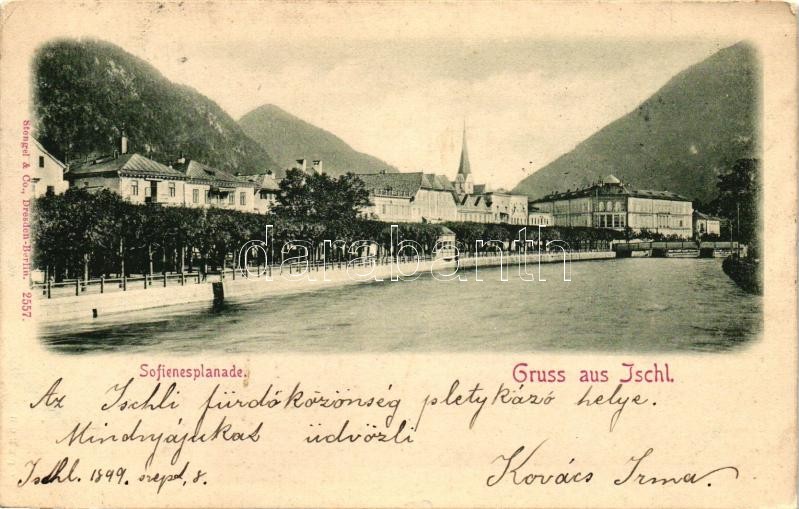 Stengel & Co., Dresden-Berlin. 2557.
darabanth
Sofienesplanade.
Gruss aus Ischl.
Az Ischli fürdőközönség pletykázó helye.
Mindnyájukat üdvözli
Ischl. 1899. szept. 8.
Kovács Irma